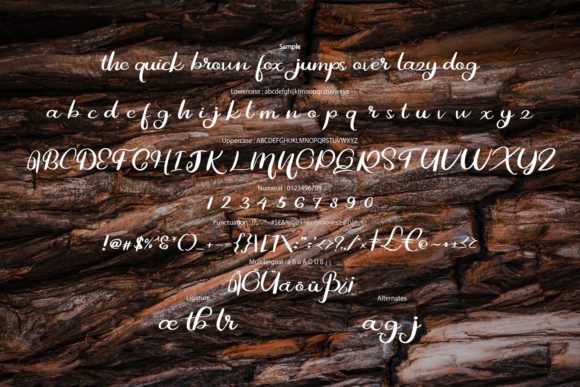 Sample
the quick brown fox jumps over lazy dog
Lowercase : abcdefghijklmnopqrstuvwxyz
a b c d e f g h i j k l m n o p q r s t u v w x y z
Uppercase : ABCDEFGHIJKLMNOPQRSTUVWXYZ
A B C D E F G H I J K L M N O P Q R S T U V W X Y Z
Numeral : 0123456789
1 2 3 4 5 6 7 8 9 0
Punctuation :
Multilingual : ä ö ü Ä Ö Ü ß ¡ ¿
ÄÖÜäöüß¿¡
Ligature
Alternates
æ th tr
æ g j